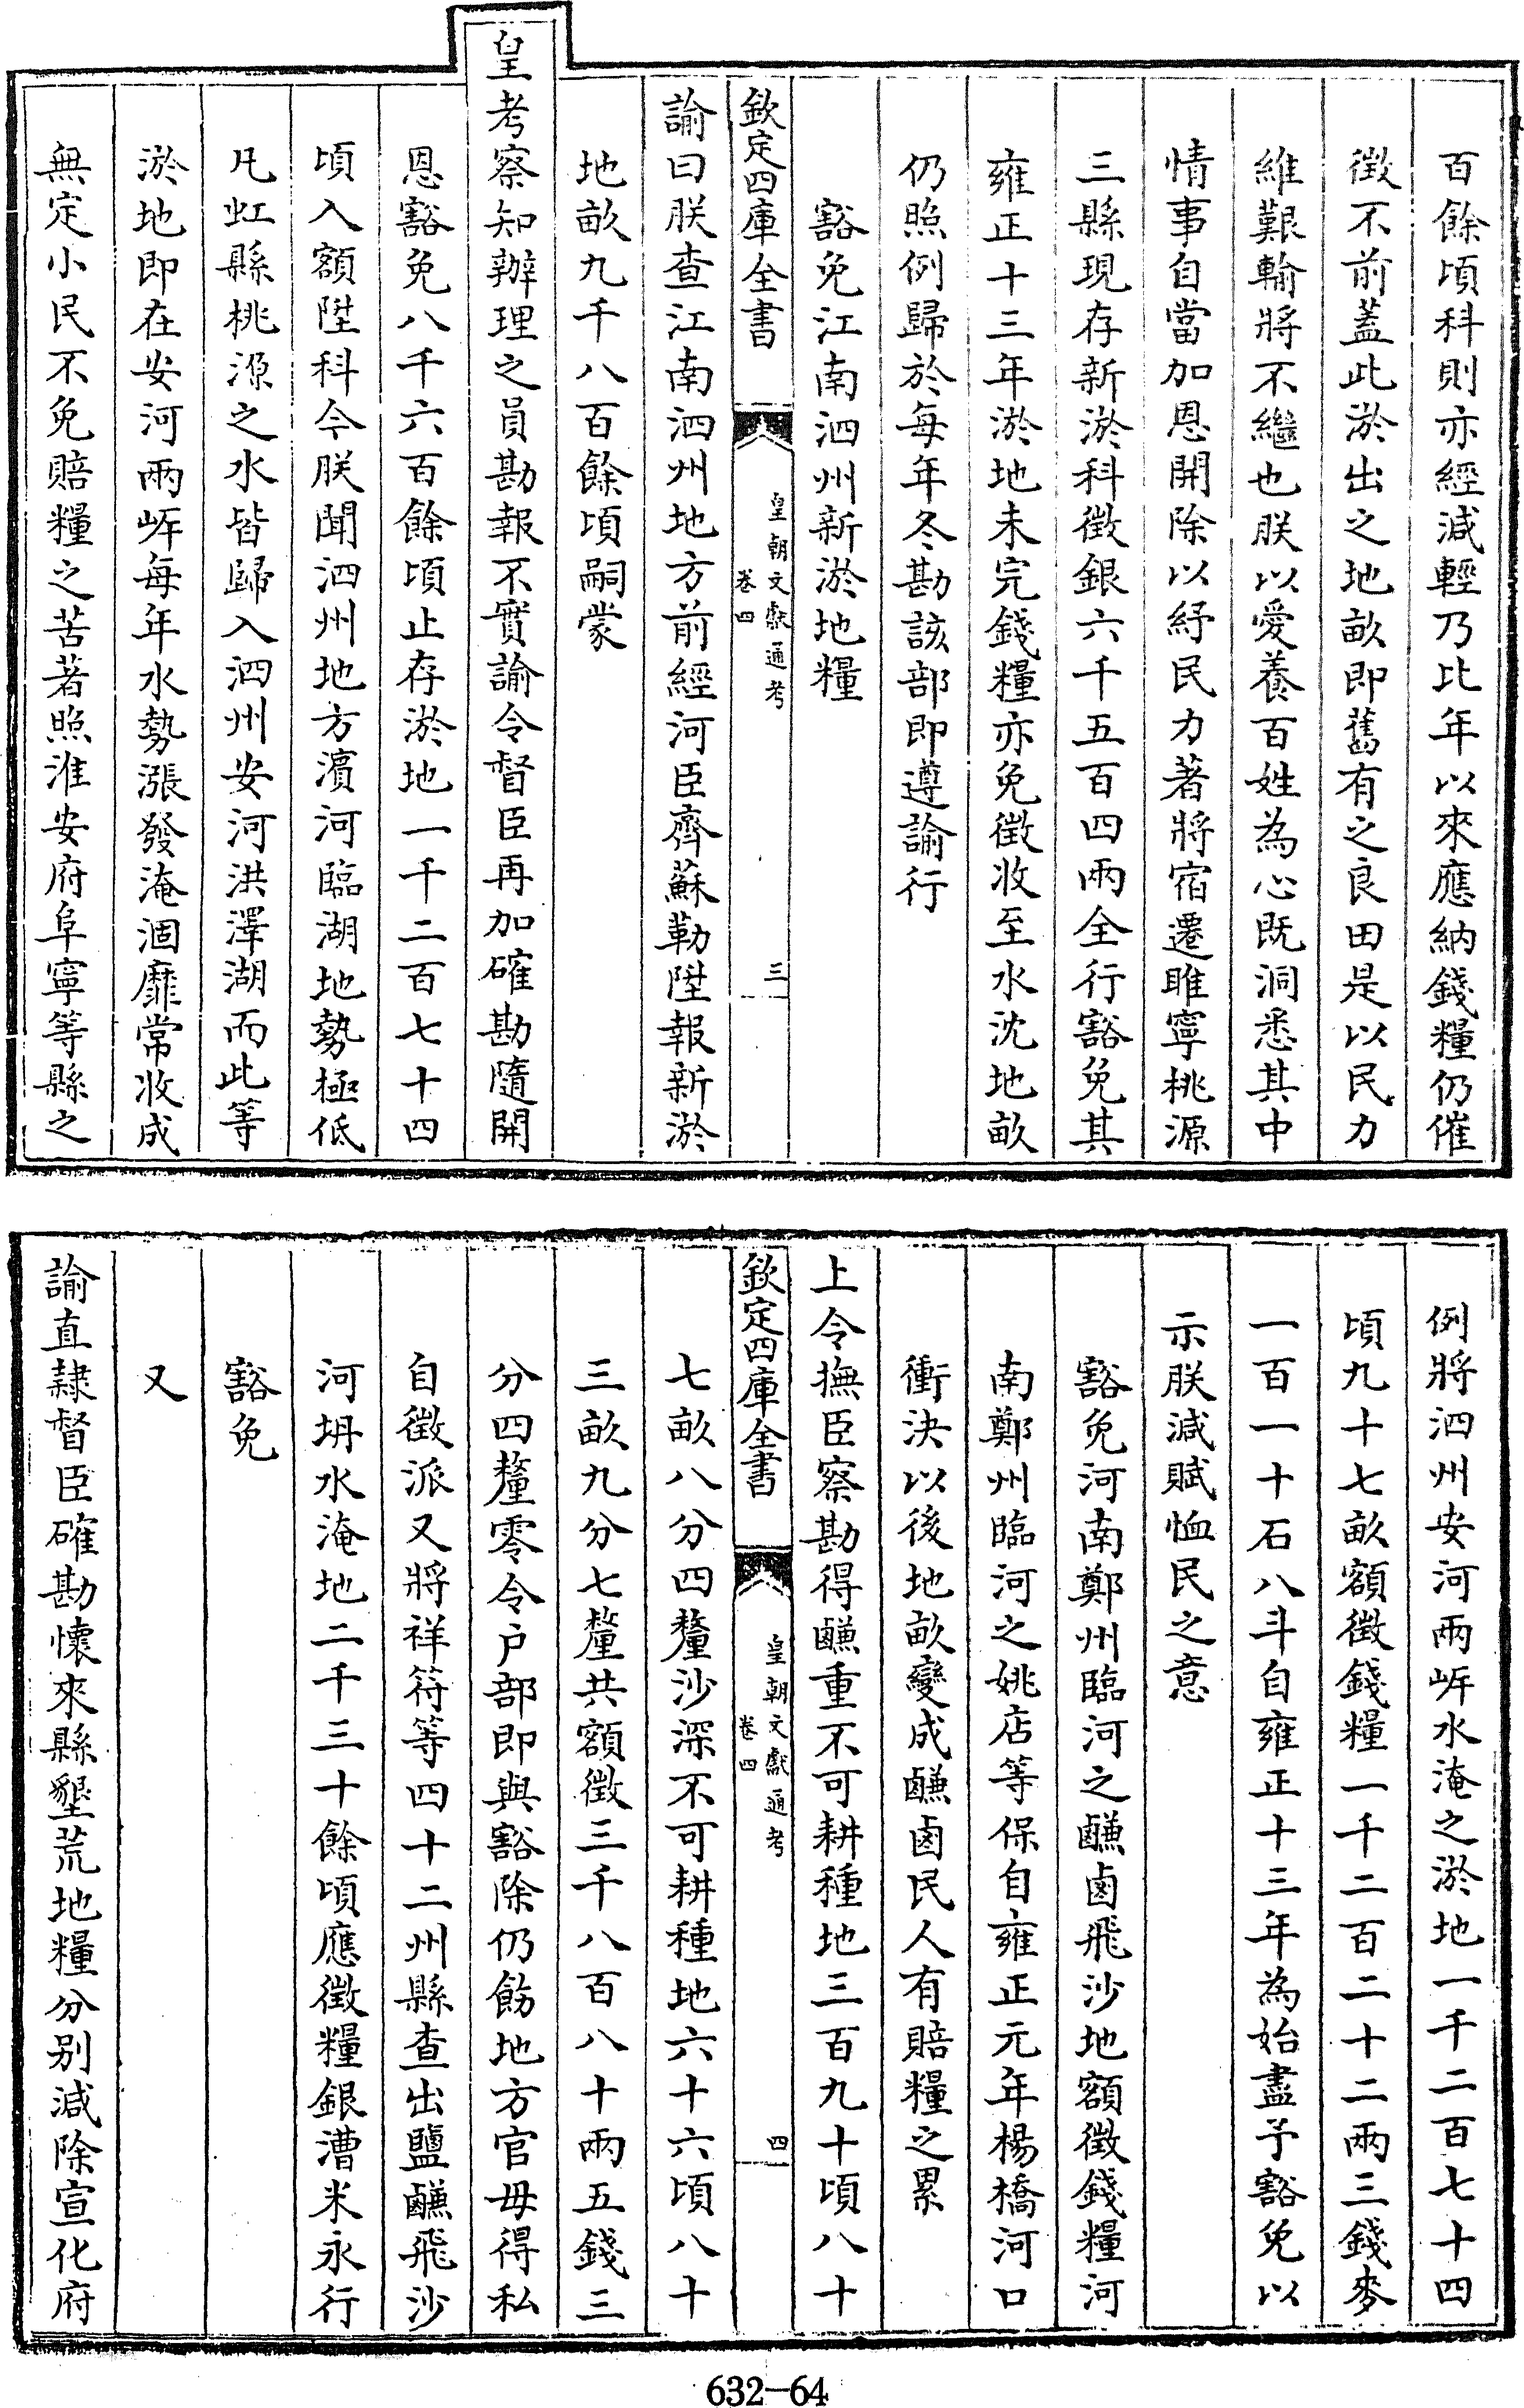 百餘頃科則亦經減輕乃比年以來應納錢糧仍催
徵不前蓋此淤出之地畝即舊有之良田是以民力
維艱輸將不繼也朕以愛養百姓為心既洞悉其中
情事自當加恩開除以紓民力著將宿遷睢寧桃源
三縣現存新淤科徵銀六千五百四兩全行豁免其
雍正十三年淤地未完錢糧亦免徵收至水沈地畝
仍照例歸於每年冬勘該部即遵諭行
豁免江南泗州新淤地糧
欽定四庫全書
皇朝文獻通考
卷四
三
諭曰朕查江南泗州地方前經河臣齊蘇勒陞報新淤
地畝九千八百餘頃嗣蒙
皇考察知辦理之員勘報不實諭令督臣再加確勘隨開
恩豁免八千六百餘頃止存淤地一千二百七十四
頃入額陞科今朕聞泗州地方濵河臨湖地勢極低
凡虹縣桃源之水皆歸入泗州安河洪澤湖而此等
淤地即在安河兩岸每年水勢漲發淹涸靡常收成
無定小民不免賠糧之苦著照淮安府阜寧等縣之
例將泗州安河兩岸水淹之淤地一千二百七十四
頃九十七畝額徵錢糧一千二百二十二兩三錢麥
一百一十石八斗自雍正十三年為始盡予豁免以
示朕減賦恤民之意
豁免河南鄭州臨河之鹻鹵飛沙地額徵錢糧河
南鄭州臨河之姚店等保自雍正元年楊橋河口
衝決以後地畝變成鹻鹵民人有賠糧之累
上令撫臣察勘得鹻重不可耕種地三百九十頃八十
欽定四庫全書
皇朝文獻通考
卷四
四
七畝八分四釐沙深不可耕種地六十六頃八十
三畝九分七釐共額徵三千八百八十兩五錢三
分四釐零令户部即與豁除仍飭地方官毋得私
自徵派又將祥符等四十二州縣查出鹽鹻飛沙
河坍水淹地二千三十餘頃應徵糧銀漕米永行
豁免
又
諭直隸督臣確勘懷來縣墾荒地糧分别減除宣化府
632-64